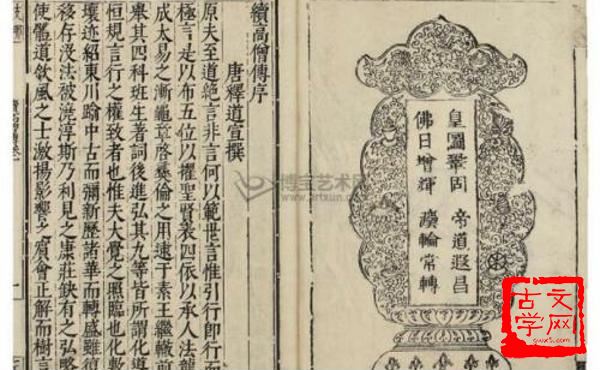 皇圖鞏固 帝道遐昌
佛日增輝 灋輪常轉
續高僧傳序
唐釋道宣撰
原夫至道絕言非言何以範世言惟引行即行而
極言是以布五位以擢聖賢表四依以承人法龍
成太易之漸龜章啓彝倫之用逮于素王繼轍前
舉其四科班生著詞後進弘其九等皆所謂化導
恒規言行之權致者也惟夫大覺之照臨也化敷
壤迹紹東川踰中古而彌新歷諸華而轉盛雖復
移存沒法被澆淳斯乃利見之康莊缺有之弘略
使體道欽風之士激揚影響之賓會正解而樹言
博宝艺术网
www.artxun.com
古文学网